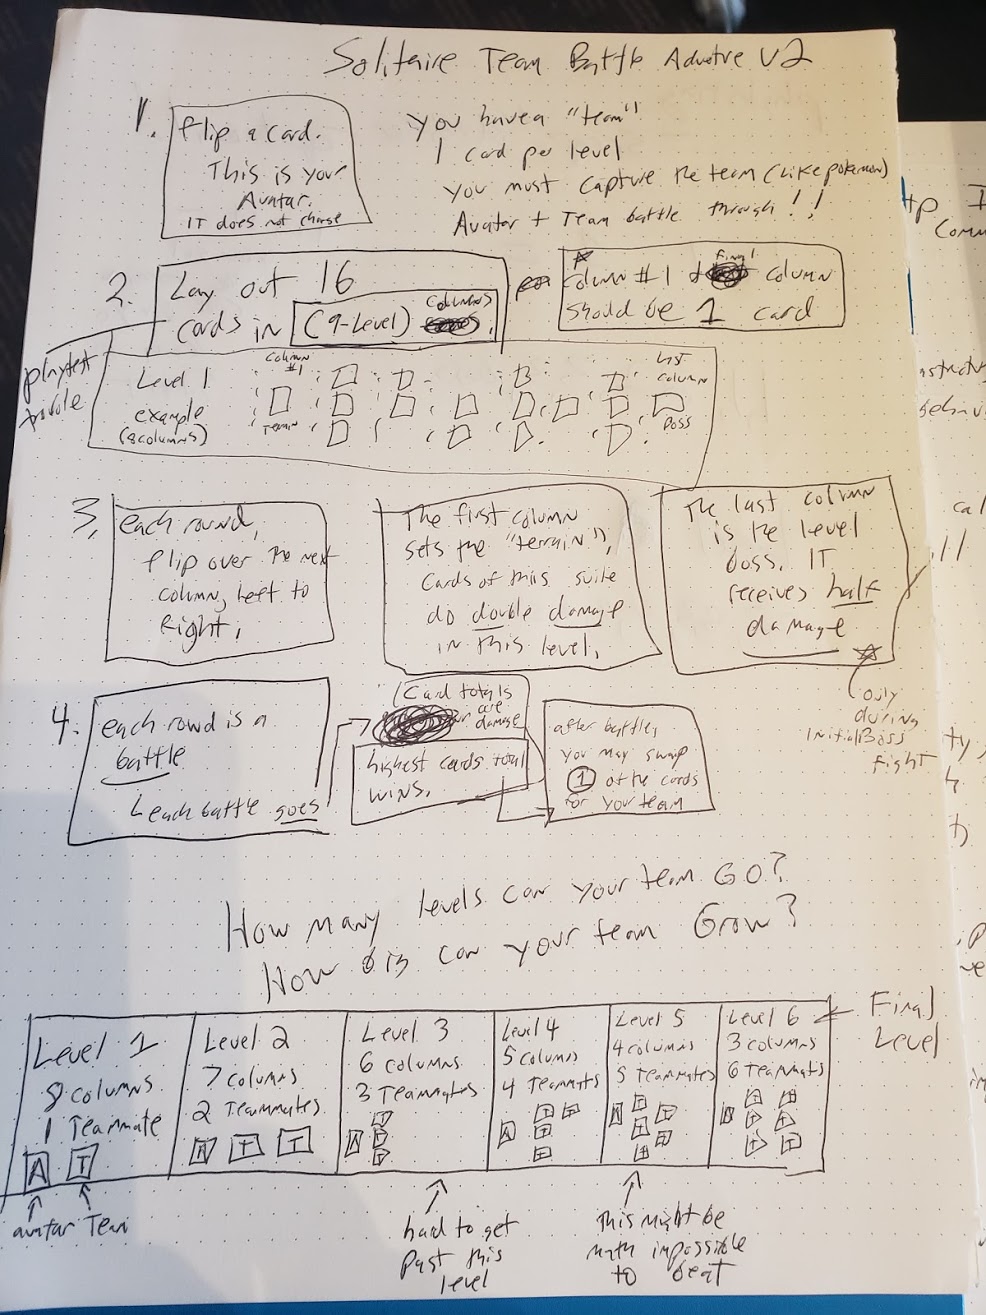 Solitaire Team Battle Advetre V2
1. flip a card.
This is your
Avatar.
IT does not change
You have a "team"
1 card per level
You must capture the team (like pokemon)
Avatar + Team battle through!!
2. Lay out 16
cards in (9-Level) columns.
column #1 & final column
should be 1 card
playtest
Level 1
example
(8 columns)
column
#1
Terrain
last
column
Boss
3. each round,
flip over the next
column, left to
Right.
The first column
sets the "terrain",
cards of this suite
do double damage
in this level.
The last column
is the level
boss. IT
receives half
damage
only
during
initial Boss
fight
4. each round is a
battle
each battle goes
Card totals
are
damage
highest cards total
wins.
after battles,
you may swap
1 of the cards
for your team
How many levels can your team GO?
How Big can your team Grow?
Level 1
8 columns
1 Teammate
A T
avatar Team
Level 2
7 columns
2 Teammates
A T T
Level 3
6 columns
3 Teammates
A T T T
Level 4
5 columns
4 Teammates
A T T T T
Level 5
4 columns
5 Teammates
A T T T T T
Level 6
3 columns
6 Teammates
A T T T T T T
Final
Level
hard to get
Past this
level
This might be
math impossible
to beat